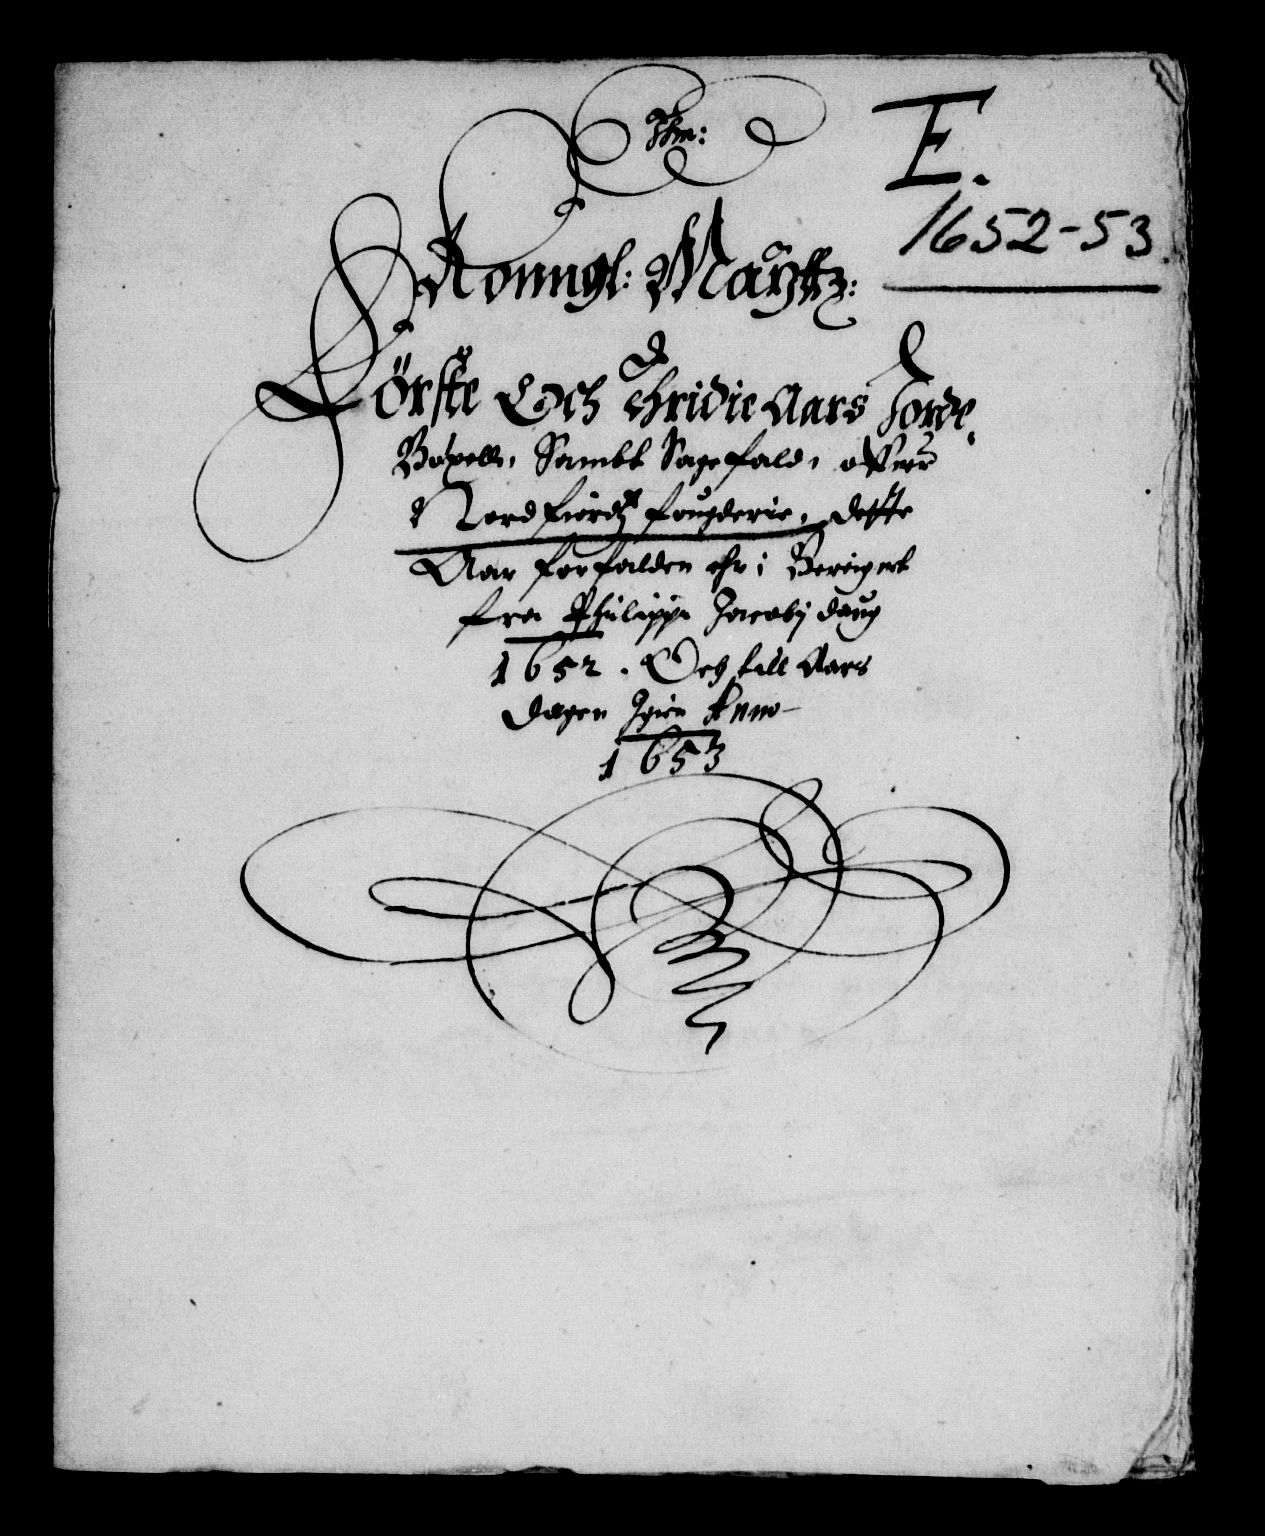 E.
1652-53.
Konngl: Maÿttz:
Förste Och thridie Aars Jorde
Bogells, Sambt Sagefald, offuer
Nordfiordtz fougderie, dette
Aar forfalden ehr; Bereignet
fra Philippi Jacobi daug
1652. Och till Aars
dagen Igien Anno
1653